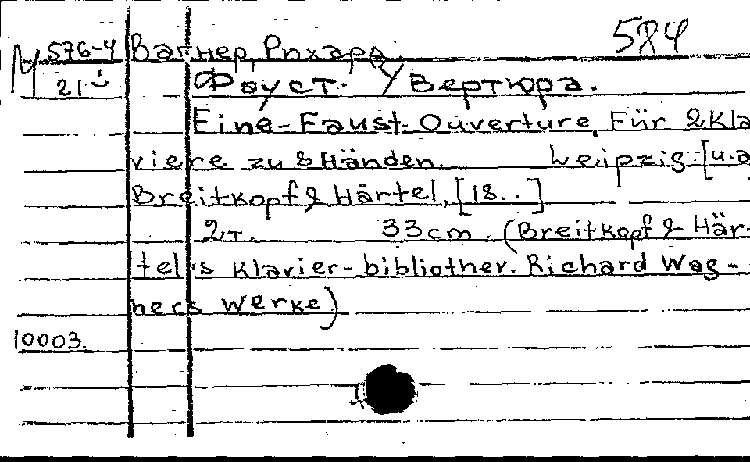 584
М 576-4 Вагнер, Рихард.
21 Фауст. Увертюра.
Eine-Faust-Ouverture. Für 2 Kla
viere zu 8 Händen. Leipzig [u.a
Breitkopf & Härtel, [18..]
2 т. 33 cm. (Breitkopf & Här-
tel's Klavier-bibliother. Richard Wag-
ners Werke)
10003.